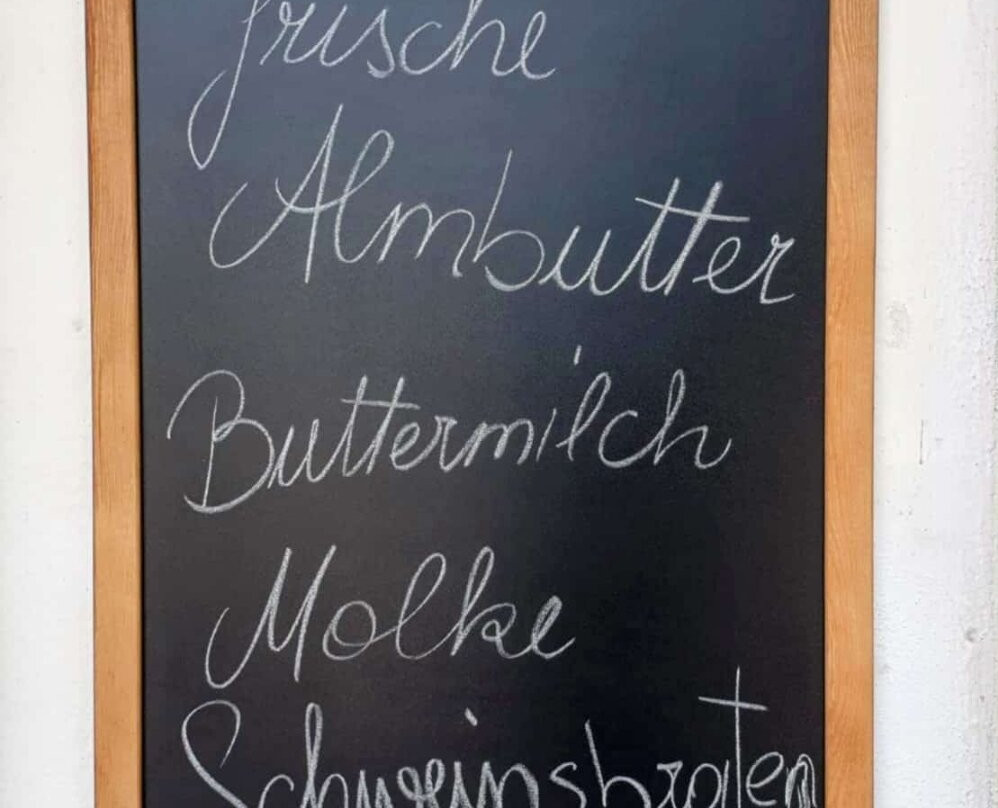 frische
Almbutter
Buttermilch
Molke
Schweinsbraten